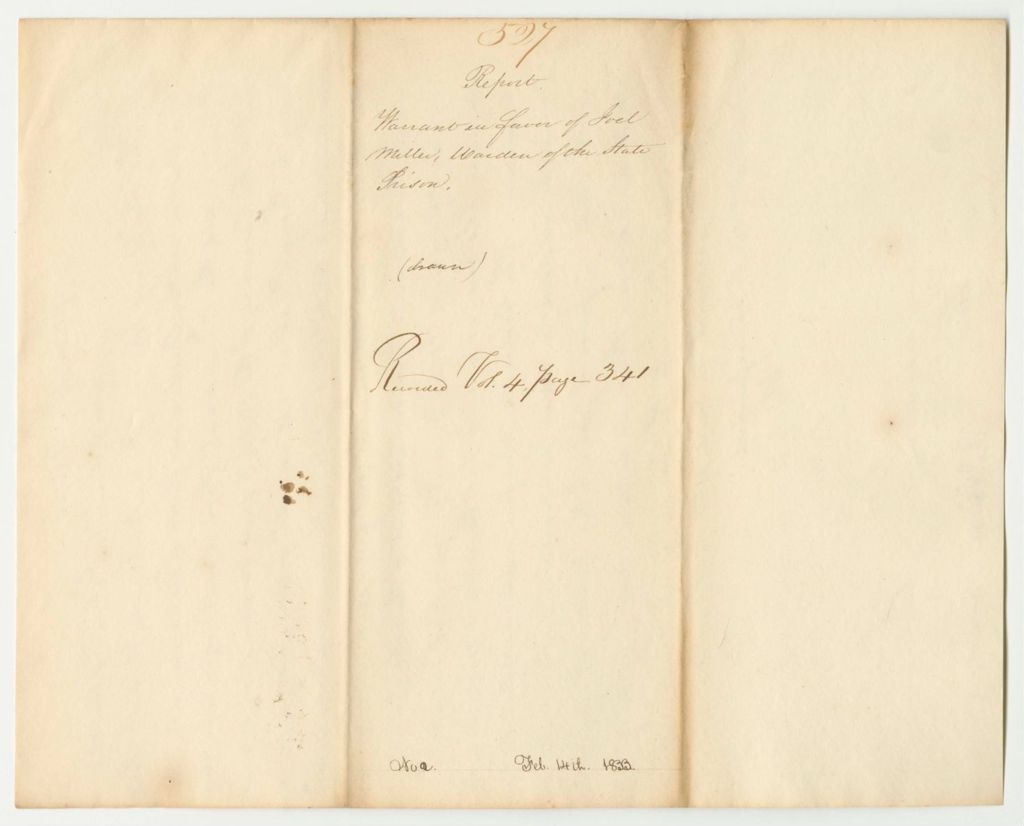 527
Report.
Warrant in favor of Joel
Miller, Warden of the State
Prison.
(drawn)
Recorded Vol. 4, page 341
Feb. 14th. 1833.